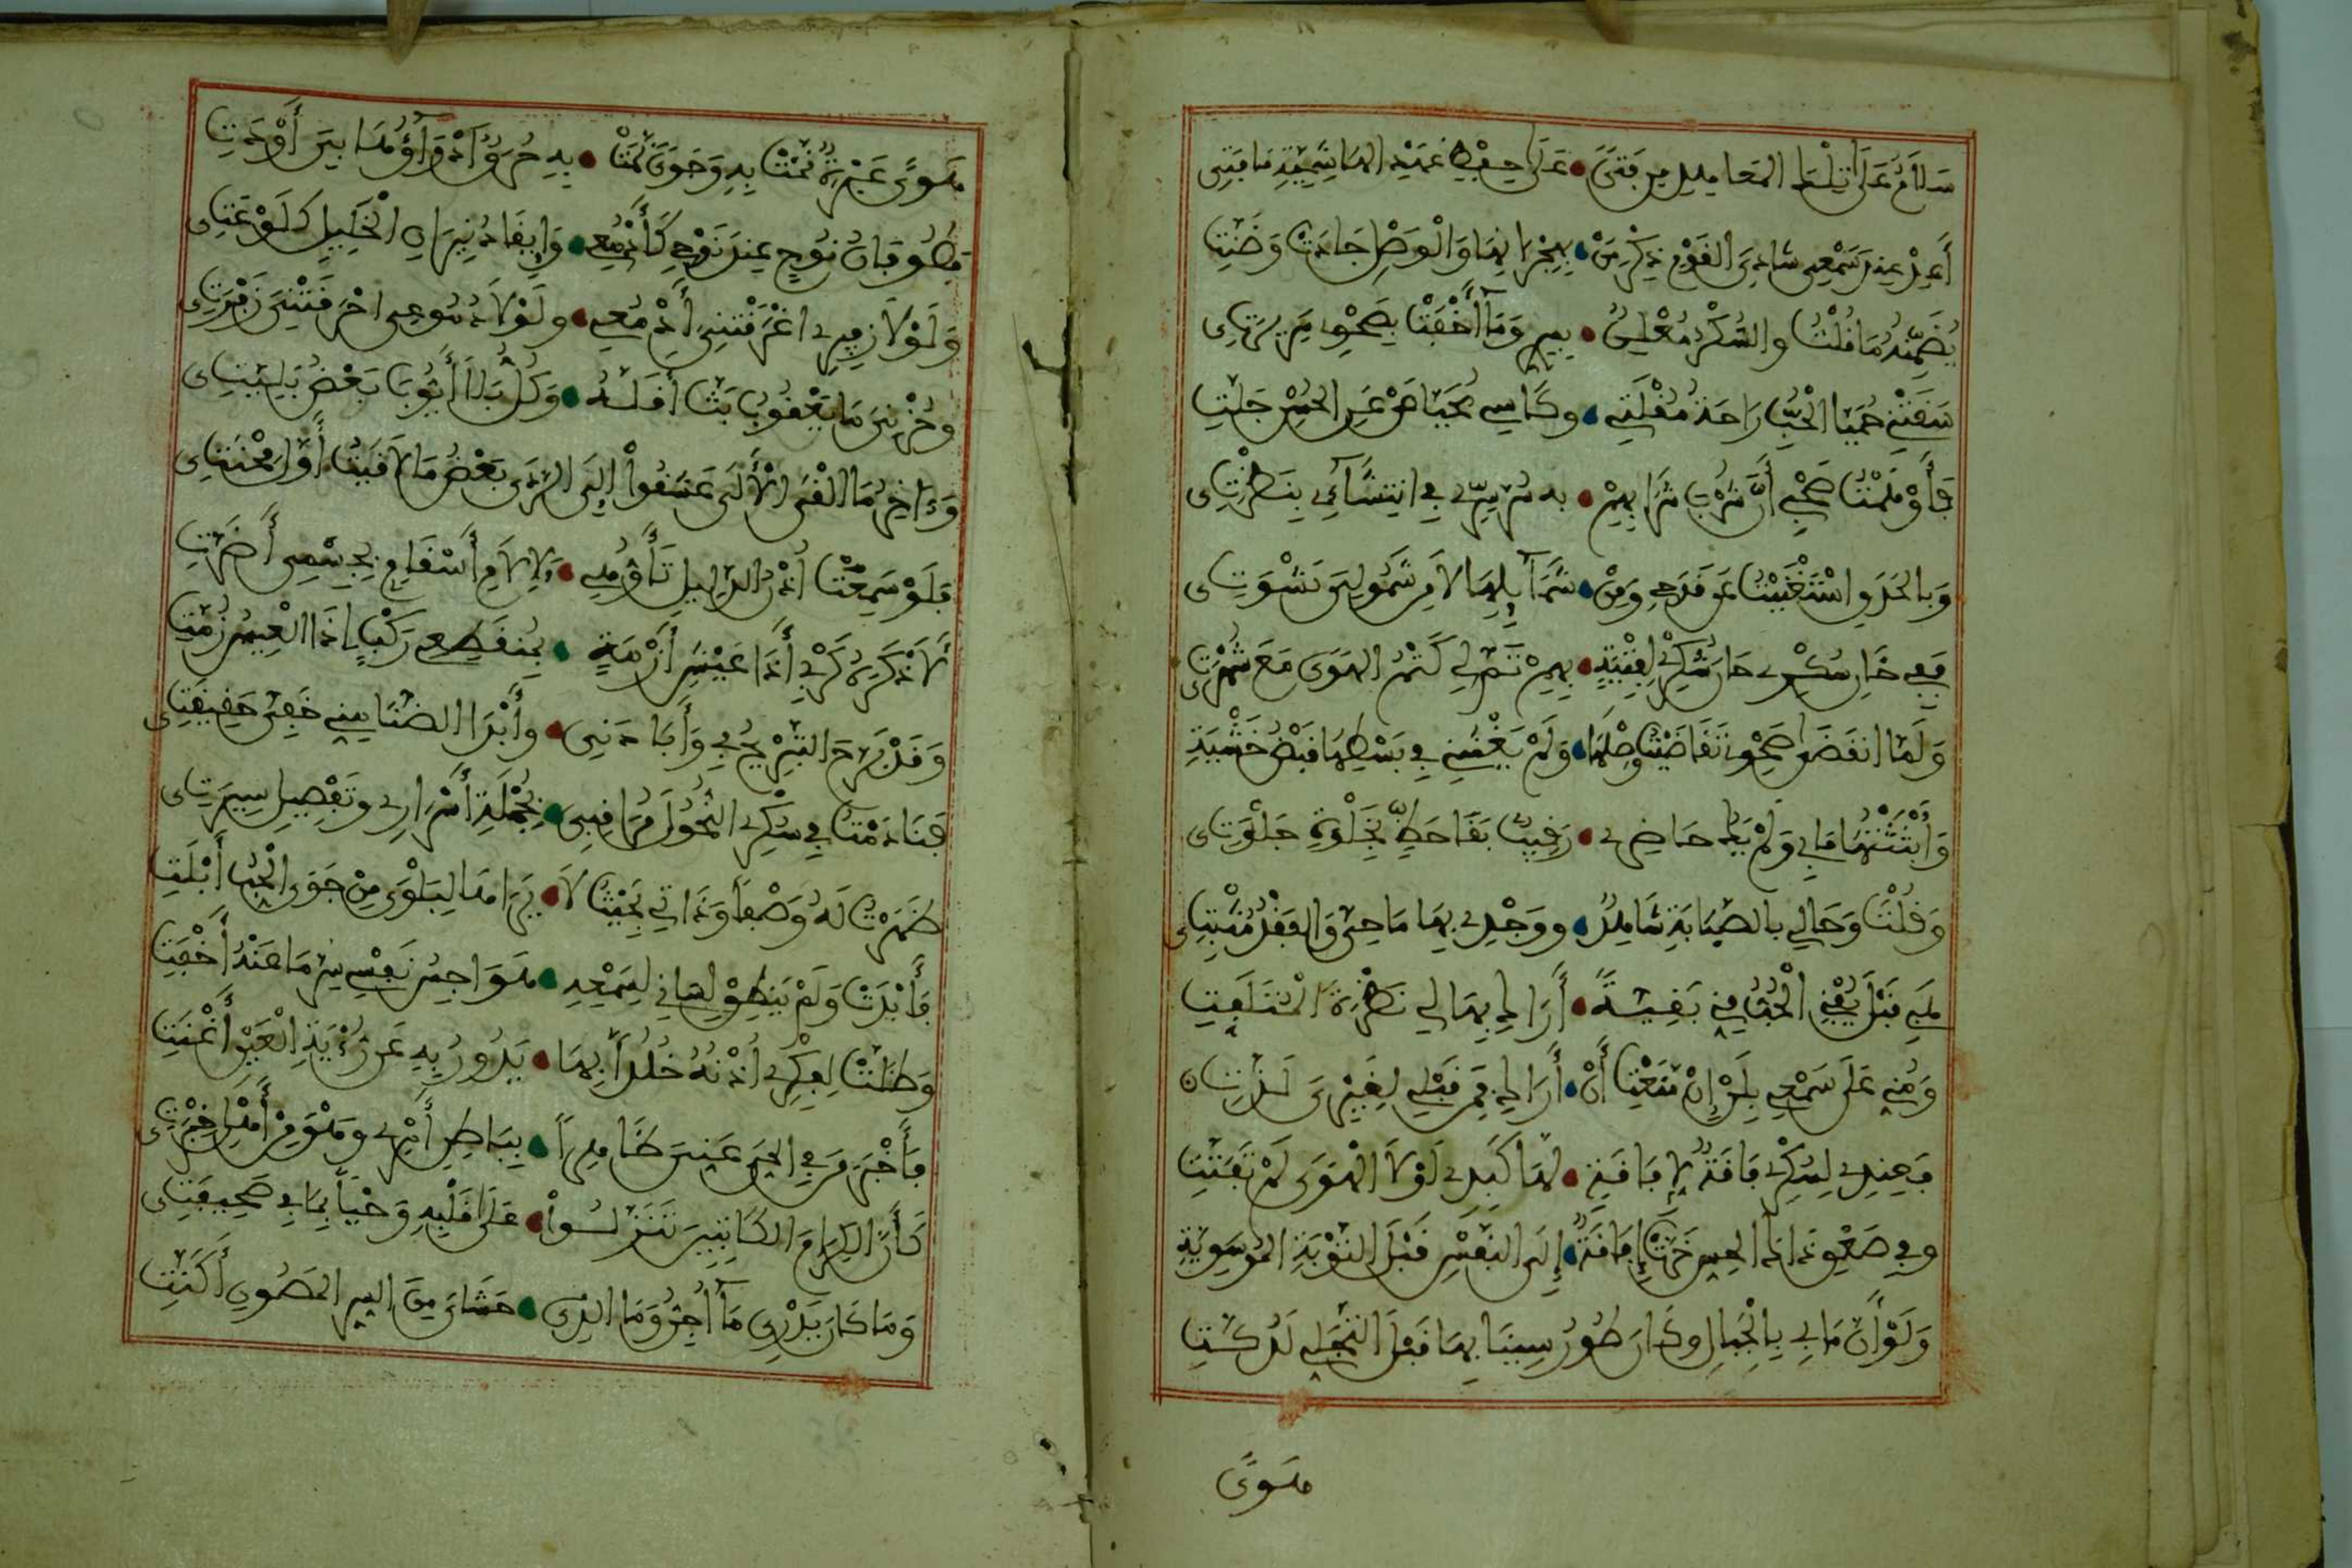 سَلَامٌ عَلَى تِلْكَ الْمَعَاهِدِ مِن فَتًى • عَلَى حِفْظِ عَهْدِ الْعَامِرِيَّةِ مَا فَتِي
أَعِدْ عِندَ سَمْعِي شَادِيَ الْقَوْمِ ذِكْرَ مَنْ • بِهِجْرَانِهَا وَالْوَصْلِ جَادَتْ وَضَنَّتِ
تُضَمِّنُهُ مَا قُلْتُ وَالسُّكْرُ مُعْلِنٌ • بِسِرٍّ وَمَا أَخْفَتْ بِصَحْوِي سَرِيرَتِي
سَقَتْنِي حُمَيَّا الْحُبِّ رَاحَةُ مُقْلَتِي • وكَأْسِي مُحَيَّا مَنْ عَنِ الْحُسْنِ جَلَّتِ
فَأَوْهَمْتُ صَحْبِي أَنَّ شُرْبَ شَرَابِهِمْ • بِهِ سُرَّ سِرِّي فِي انتِشَائِي بِنَظْرَتِي
وَبِالْحَدَقِ اسْتَغْنَيْتُ عَن قَدَحِي وَمِنْ • شَمَائِلِهَا لَا مِن شَمُولِيَ نَشْوَتِي
فَفِي حَانِ سُكْرِي حَانَ شُكْرِي لِفِتْيَةٍ • بِهِمْ تَمَّ لِي كَتْمُ الْهَوَى مَعَ شُهْرَتِي
وَلَمَّا انقَضَى صَحْوِي تَقَاضَيْتُ وَصْلَهَا • وَلَمْ يَغْشَنِي فِي بَسْطِهَا قَبْضُ خَشْيَةِ
وَأَبْثَثْتُهَا مَا بِي وَلَمْ يَكُ حَاضِرِي • رَقِيبٌ بَقَا حَظٍّ بِخَلْوَةِ جَلْوَتِي
وَقُلْتُ وَحَالِي بِالصَّبَابَةِ شَاهِدٌ • ووَجْدِي بِهَا مَاحِيَّ وَالْفَقْدُ مُثْبِتِي
هَبِي قَبْلَ يُفْنِي الْحُبُّ مِنِّي بَقِيَّةً • أَرَاكِ بِهَا لِي نَظْرَةَ الْمُتَلَفِّتِ
وَمُنِّي عَلَى سَمْعِي بِلَنْ إِنْ مَنَعْتِ أَنْ • أَرَاكِ فَمِن قَبْلِي لِغَيْرِيَ لَذَّتِ
فَعِندِي لِسُكْرِي فَاقَةٌ لِإِفَاقَةٍ • لَهَا كَبِدِي لَوْلَا الْهَوَى لَمْ تَفَتَّتِ
وفِي صَعْقِ دَكِّ الْحِسِّ خَرَّتْ إِفَاقَةً • إِلَى النَّفْسِ قَبْلَ التَّوْبَةِ الْمُوسَوِيَّةِ
وَلَوْ أَنَّ مَا بِي بِالْجِبَالِ وكَانَ طُورُ سِينَا بِهَا قَبْلَ التَّجَلِّي لَدُكَّتِ
هَوًى
هَوًى عَبْرَةٌ نَمَّتْ بِهِ وَجَوًى نَمَتْ • بِهِ حُرَقٌ أَدْوَاؤُهَا بِيَ أَوْدَتِ
فَطُوفَانُ نُوحٍ عِندَ نَوْحِي كَأَدْمُعِي • وَإِيقَادُ نِيرَانِ الْخَلِيلِ كَلَوْعَتِي
وَلَوْلَا زَفِيرِي أَغْرَقَتْنِي أَدْمُعِي • ولَوْلَا دُمُوعِي أَحْرَقَتْنِي زَفْرَتِي
وحُزْنِيَ مَا يَعْقُوبُ بَثَّ أَقَلَّهُ • وَكُلُّ بَلَا أَيُّوبَ بَعْضُ بَلِيَّتِي
وَءَاخِرُ مَا أَلْقَى الْأُلَى عَشِقُوا إِلَى الرَّدَى بَعْضُ مَا لَاقَيْتُ أَوَّلَ مِحْنَتِي
فَلَوْ سَمِعَتْ أُذْنُ الدَّلِيلِ تَأَوُّهِي • لِآلَامِ أَسْقَامٍ بِجِسْمِي أَضَرَّتِ
لَأَذْكَرَهُ كَرْبِي أَذَا عَيْشِ أَزْمَةٍ • بِمُنقَطِعِي رَكْبٍ إِذَا الْعِيسُ زُمَّتِ
وَقَدْ بَرَّحَ التَّبْرِيحُ بِي وَأَبَادَنِي • وأَبْدَا الضَّنَا مِنِّي خَفِيَّ حَقِيقَتِي
فَنَادَمْتُ فِي سُكْرِي النُّحُولَ مُرَاقِبِي • بِجُمْلَةِ أَسْرَارِي وتَفْصِيلِ سِيرَتِي
ظَهَرْتُ لَهُ وَصْفًا وَذَاتِي بِحَيْثُ لَا • يَرَاهَا لِبَلْوَى مِنْ جَوَى الْحُبِّ أَبْلَتِ
فَأَبْدَتْ وَلَمْ يَنطِقْ لِسَانِي لِسَمْعِهِ • هَوَاجِسُ نَفْسِي سِرَّ مَا عَنْهُ أَخْفَتِ
وَظَلَّتْ لِفِكْرِي أُذْنُهُ خَلَدًا بِهَا • يَدُورُ بِهِ عَن رُؤْيَةِ الْعَيْنِ أَغْنَتِ
فَأَخْبَرَ مَن فِي الْحَيِّ عَنِّيَ ظَاهِرًا • بِبَاطِنِ أَمْرِي وهْوَ مِنْ أَهْلِ خِبْرَتِي
كَأَنَّ الْكِرَامَ الْكَاتِبِينَ تَنَزَّلُوا • عَلَى قَلْبِهِ وَحْيًا بِمَا فِي صَحِيفَتِي
وَمَا كَانَ يَدْرِي مَا أُجِنُّ وَمَا الَّذِي • حَشَايَ مِنَ السِّرِّ الْمَصُونِ أَكَنَّتِ